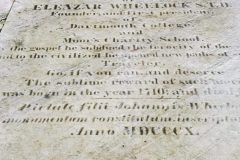 ELEAZAR WHEELOCK S.T.D.
Founder and first president
of
Dartmouth College
and
Moor's Charity School.
the gospel he subdued the ferocity of the
to the civilized he opened new paths of
Traveler,
Go, if you can, and deserve
The sublime reward of such
was born in the year 1710 and
Pietate filii Johannis Wheel
monumentum constitutum inscriptum
Anno MDCCCX.